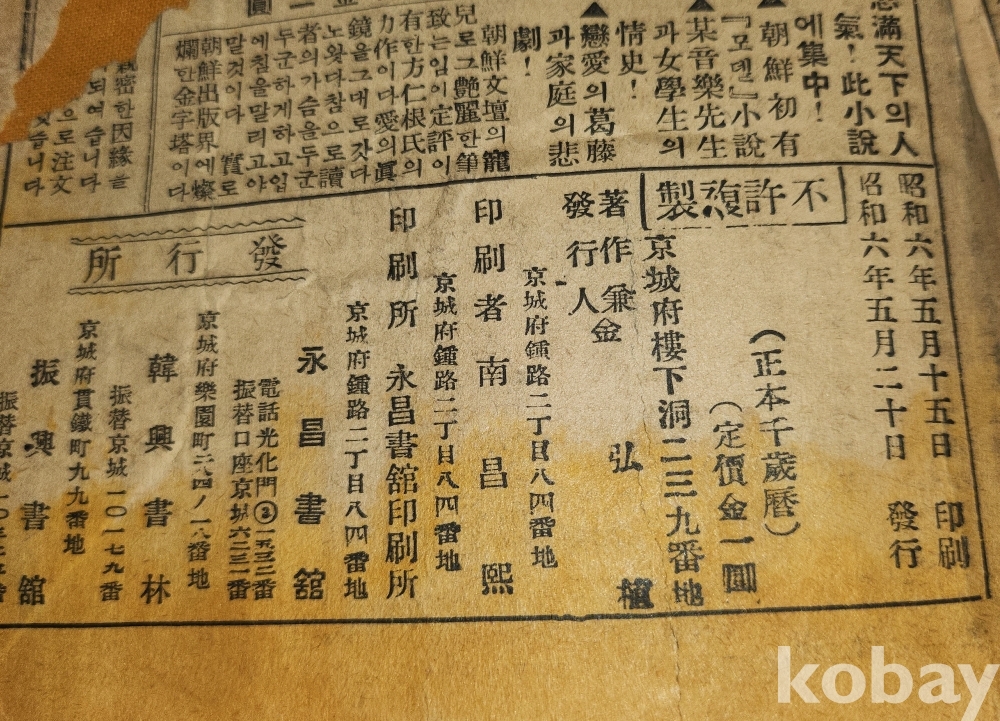 滿天下의人
氣！此小說
에集中！
▲朝鮮初有
『모델』小說
▲某音樂先生
과女學生의
情史！
▲戀愛의葛藤
과家庭의悲
劇！
朝鮮文壇의寵
兒로그艶麗한筆
致는임이定評이
有한方仁根氏의
力作이다愛의眞
鏡을그대로갓다
노왓다참으로讀
者의가슴을두군
두군하게하고입
에침을말리고야
말것이다 實로
朝鮮出版界에燦
爛한金字塔이다
親密한因緣을
되여슴니다
으로注文
昭和六年五月十五日 印刷
昭和六年五月二十日 發行
不許複製
(正本千歲曆)
(定價金一圓
京城府樓下洞二三九番地
著作兼
發行人 金弘植
京城府鍾路二丁目八四番地
印刷者 南昌熙
京城府鍾路二丁目八四番地
印刷所 永昌書舘印刷所
發行所
京城府鍾路二丁目八四番地
永昌書舘
電話光化門
振替口座京城六二三一番
京城府樂園町二八四ノ一八番地
韓興書林
振替京城一〇一七九番
京城府貫鐵町九九番地
振興書舘